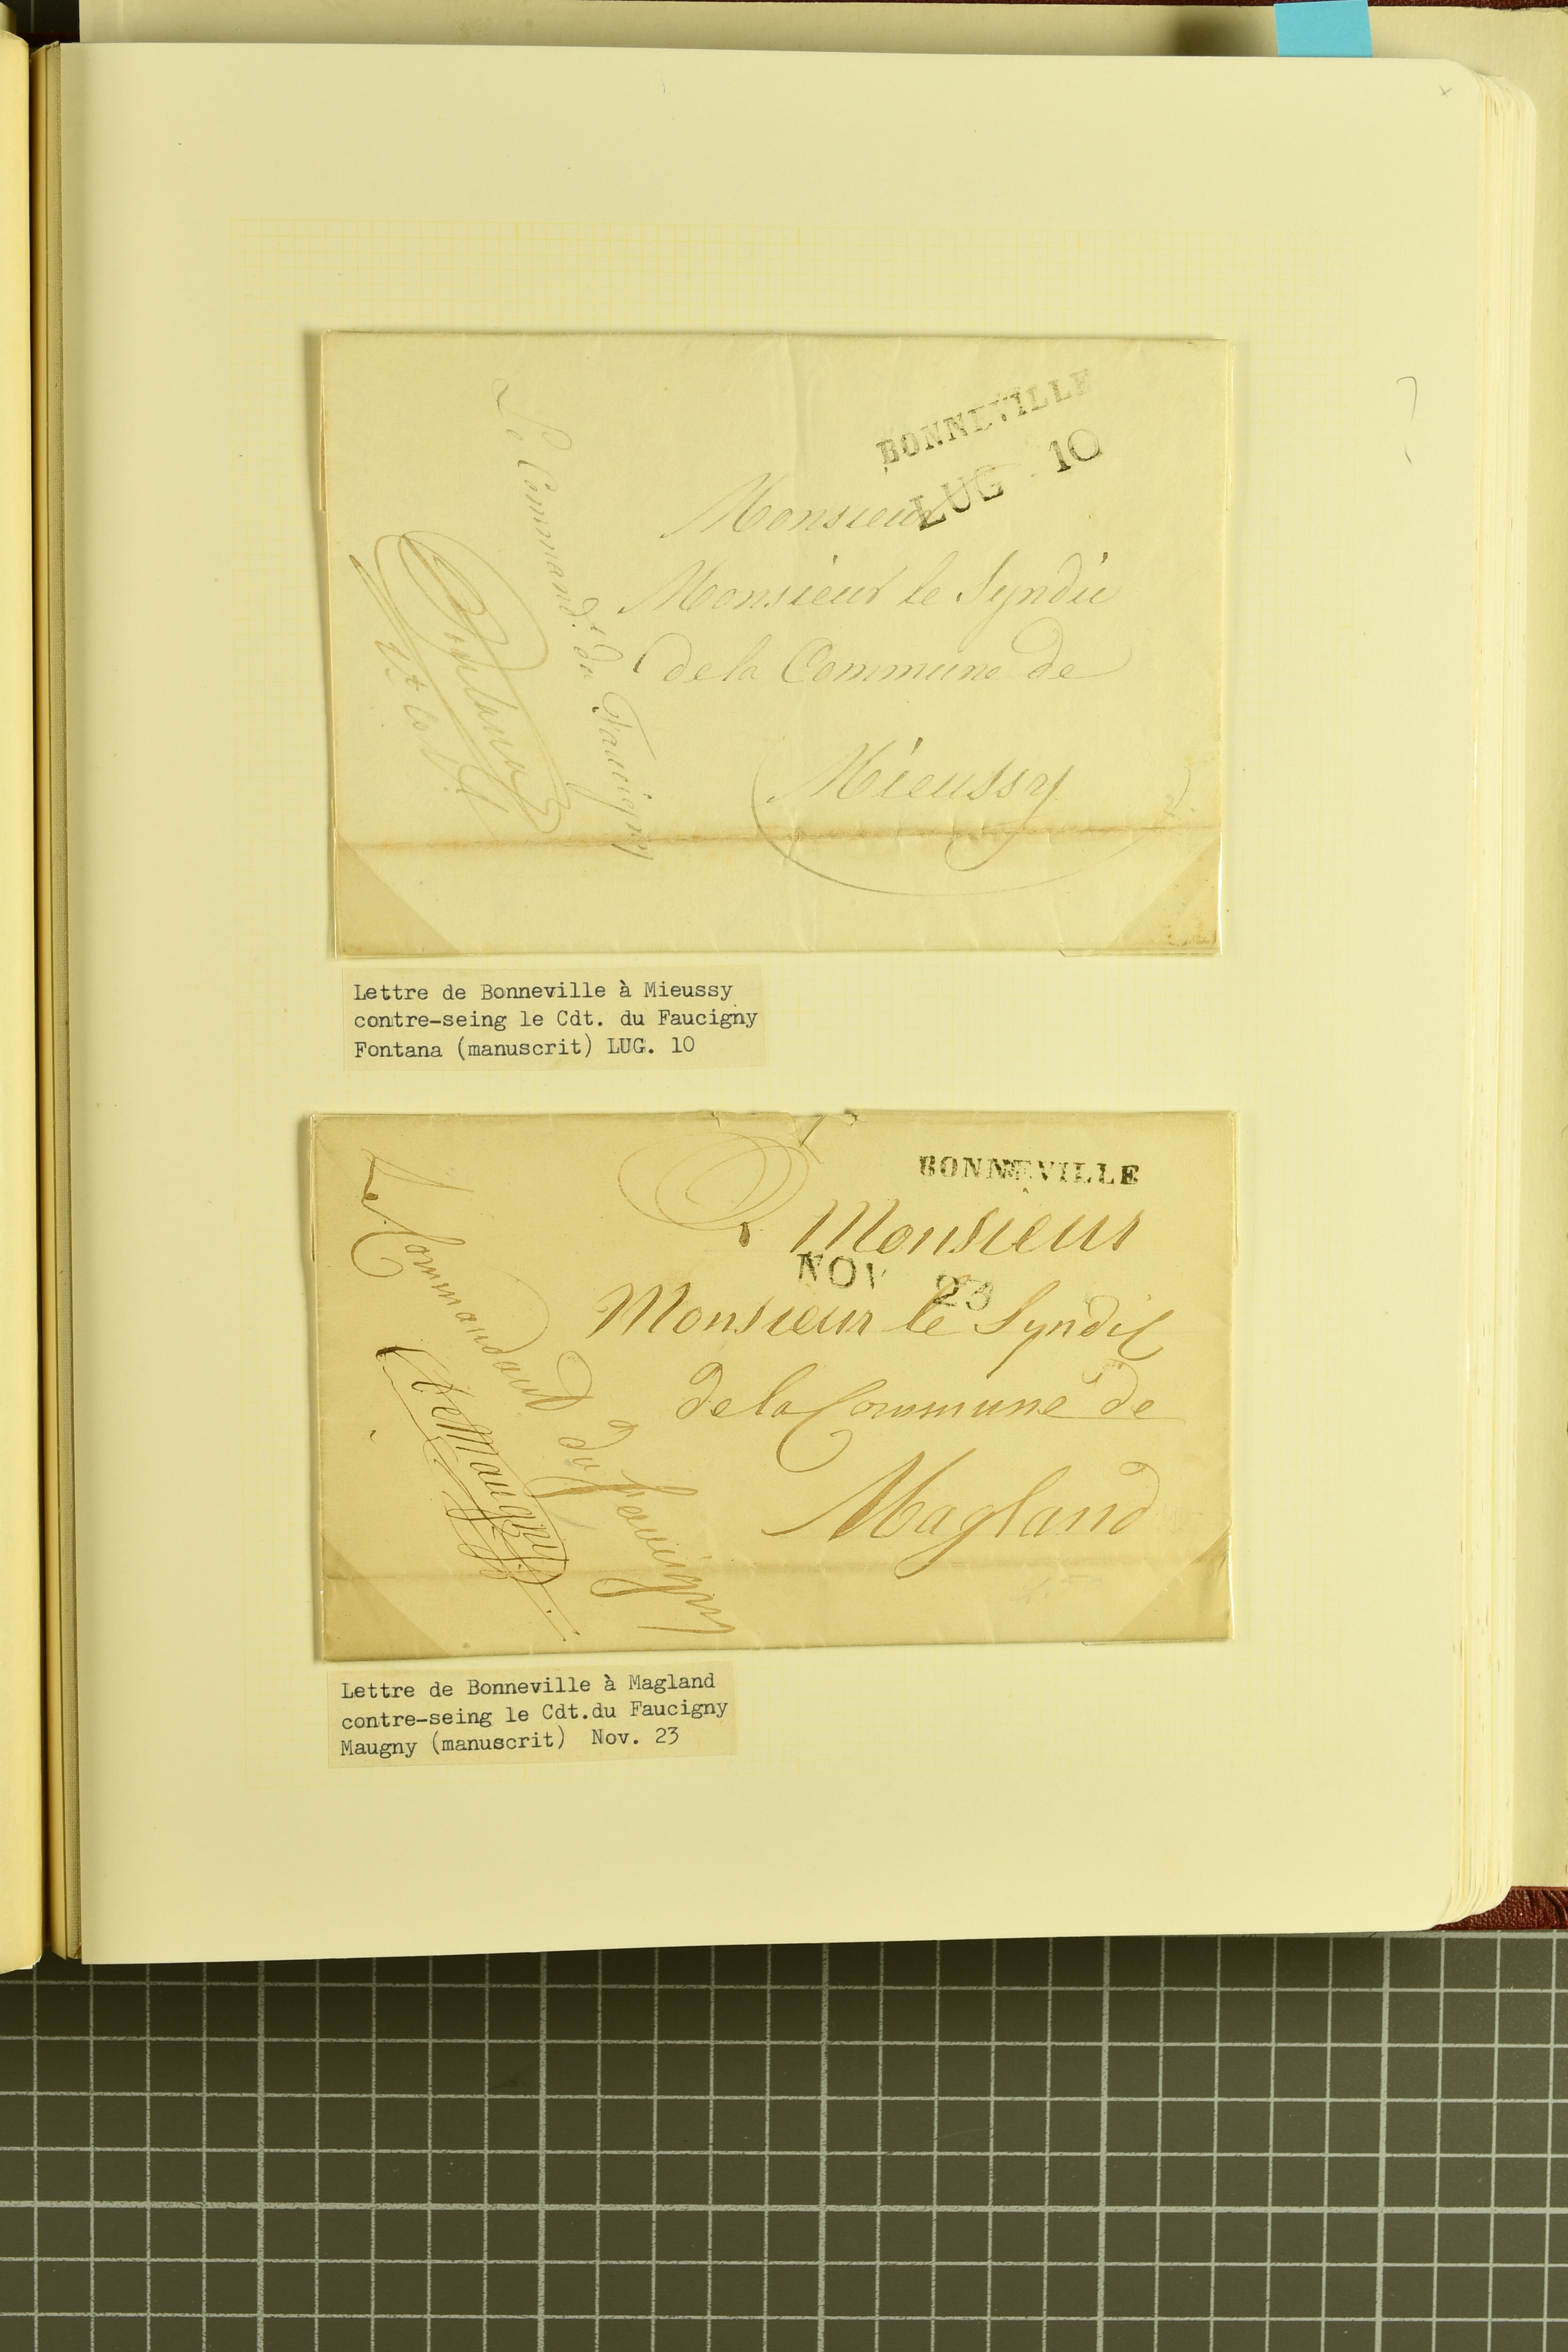 BONNEVILLE
LUG 10
Monsieur
Monsieur le Syndic
de la Commune de
Mieussy
Le Command.t du Faucigny
Fontana
Lettre de Bonneville à Mieussy
contre-seing le Cdt. du Faucigny
Fontana (manuscrit) LUG. 10
BONNEVILLE
A Monsieur
NOV 23
Monsieur le Syndic
de la Commune de
Magland
Le Commandant du faucigny
De Maugny
Lettre de Bonneville à Magland
contre-seing le Cdt.du Faucigny
Maugny (manuscrit) Nov. 23